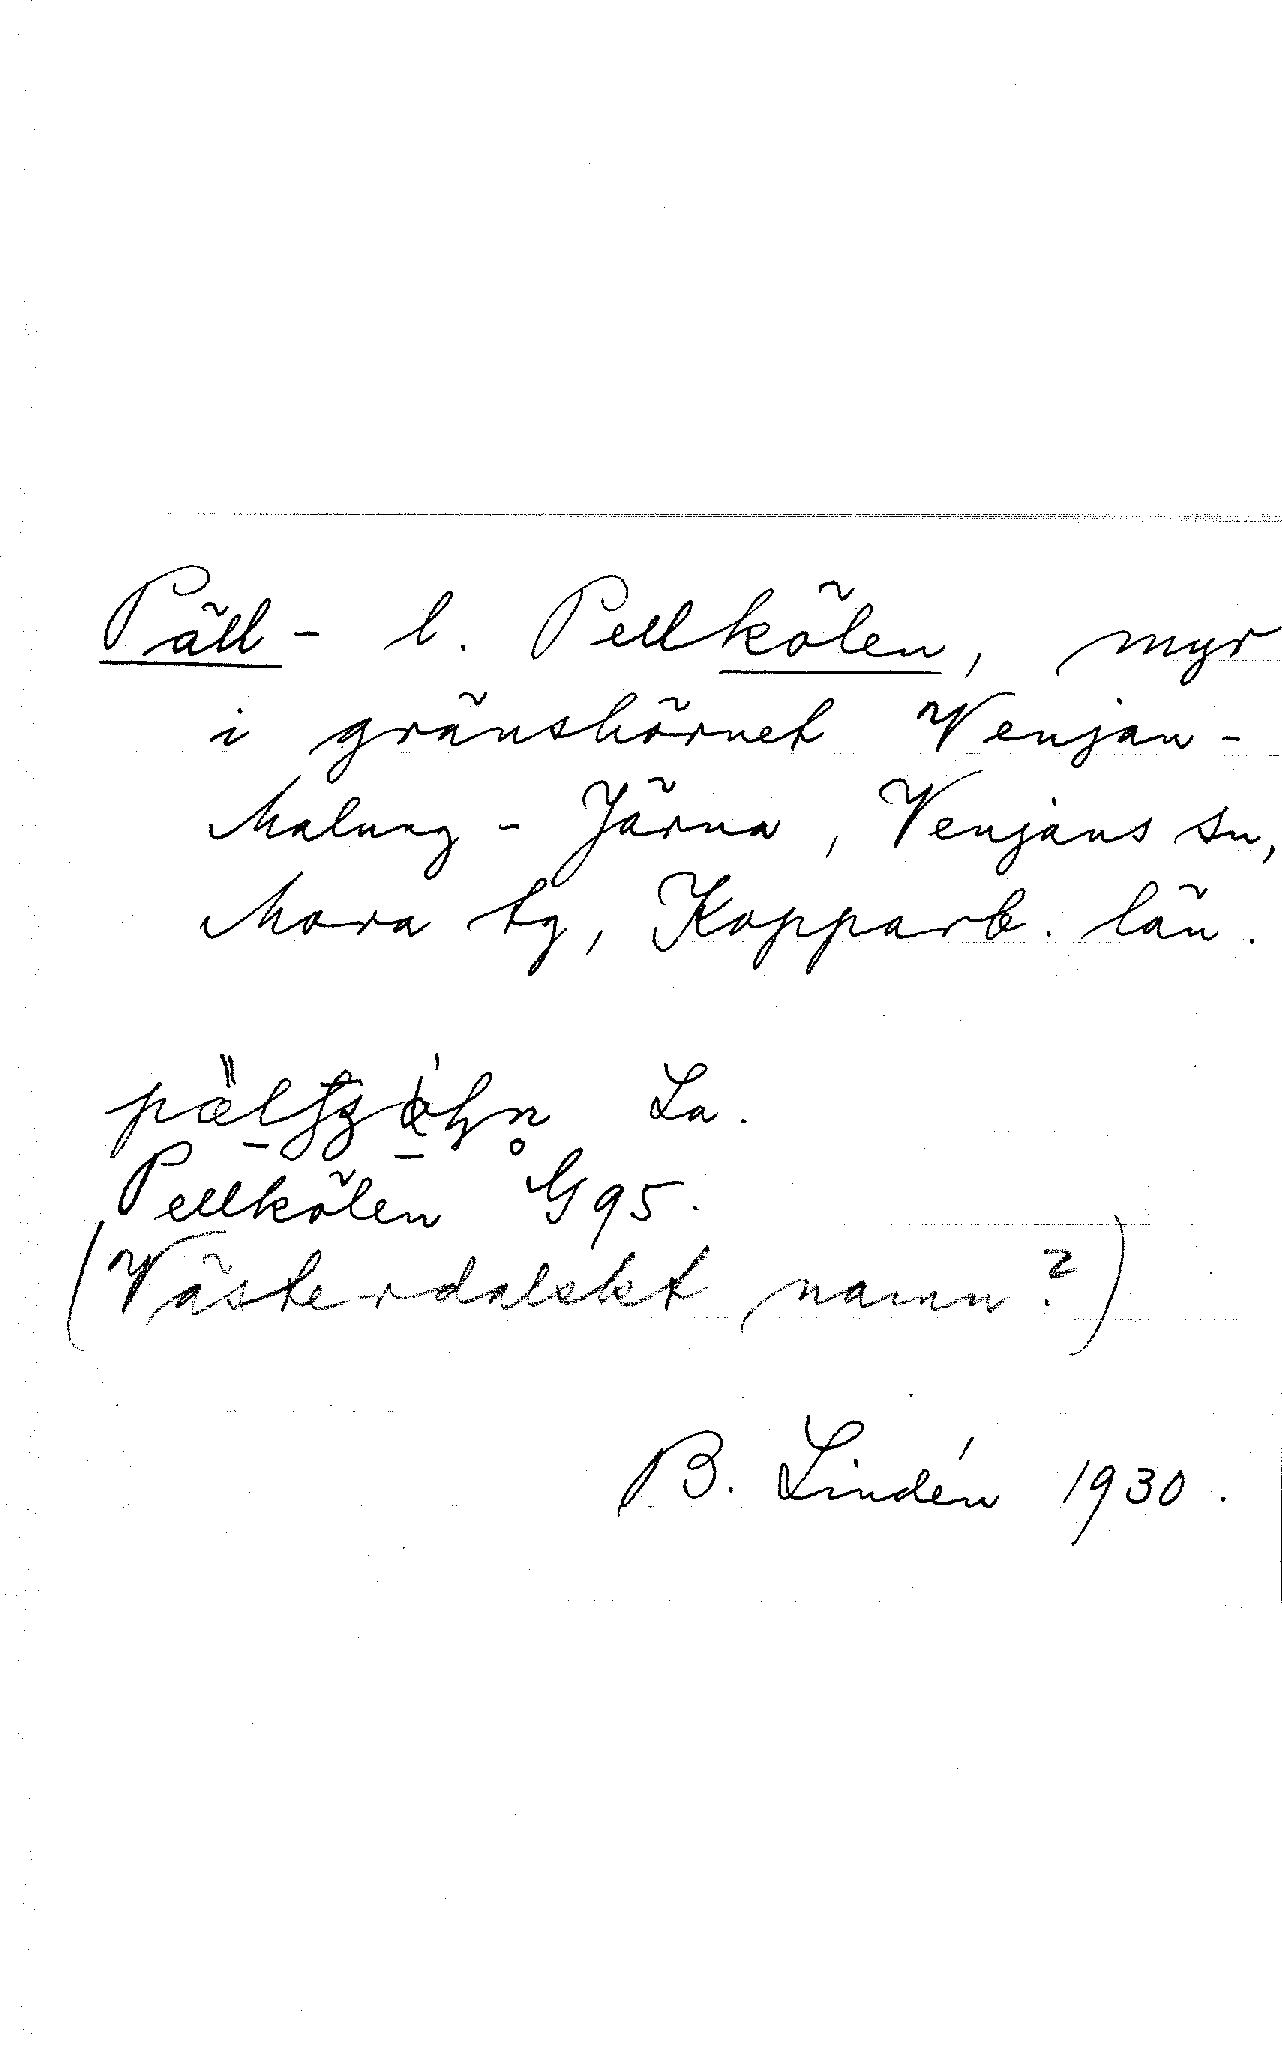 Päll- l. Pellkölen, myr
i gränshörnet Venjan-
Malung - Järna, Venjans sn,
Mora tg, Kopparb. län.
La.
Pellkölen G95.
(Västerdalskt namn?)
B. Lindén 1930.